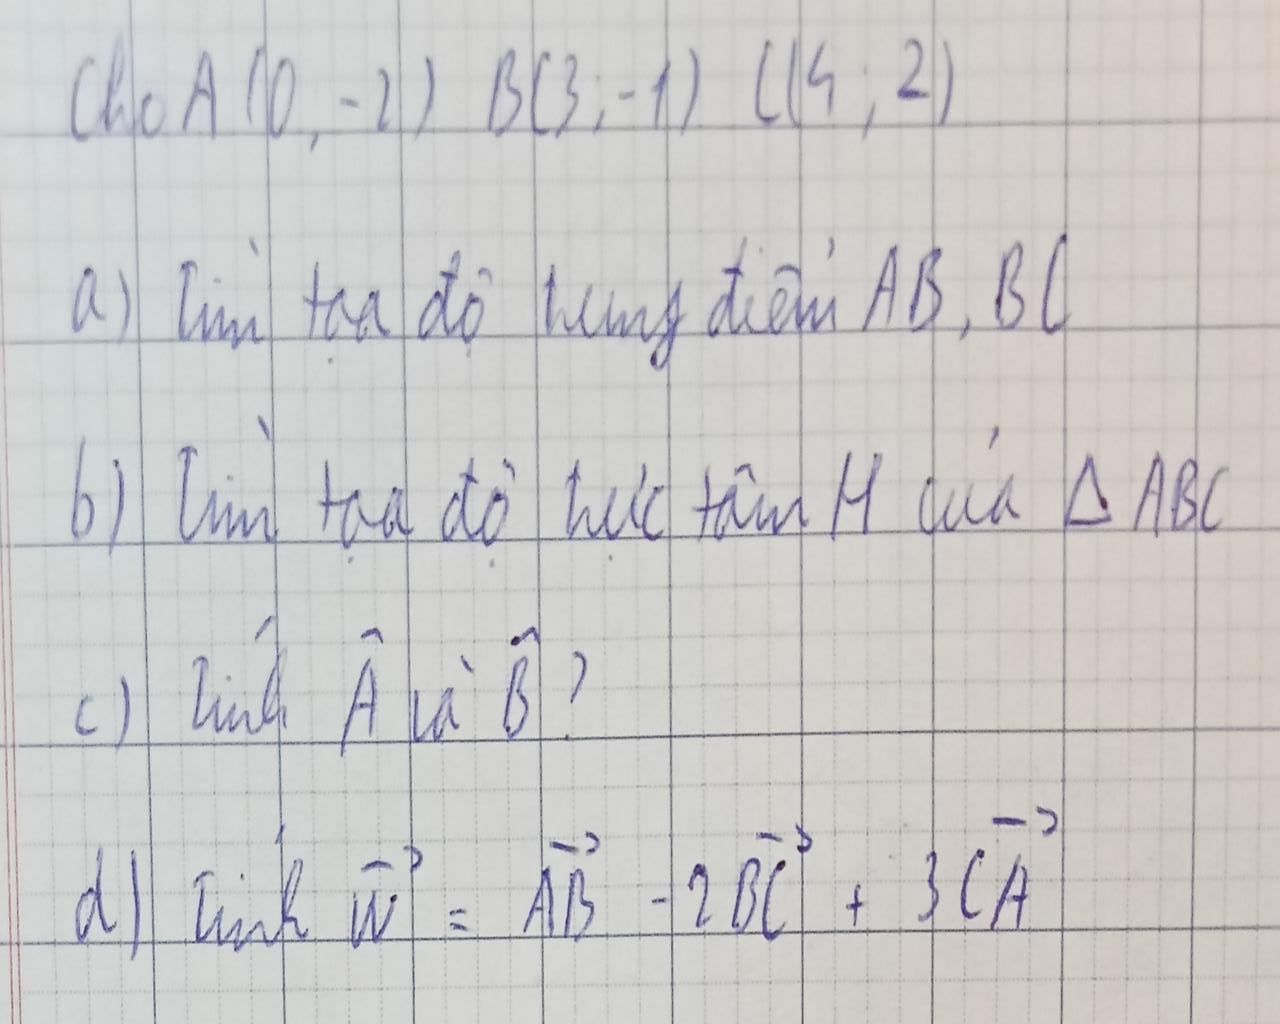 Cho A (0, -2) B(3; -1) C(4; 2)
a) Tìm tọa độ trung điểm AB, BC
b) Tìm tọa độ trực tâm H của Δ ABC
c) Tính Â và B̂ ?
d) Tính w⃗ = AB⃗ - 2BC⃗ + 3CA⃗